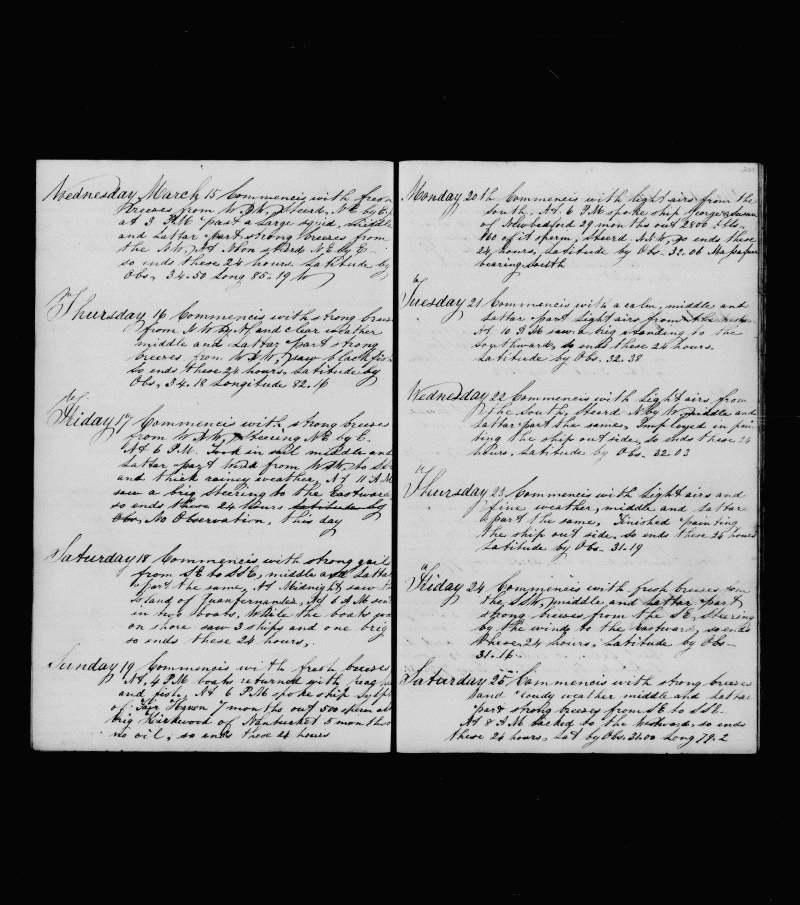 Wednesday March 15 Commencis with fresh
Breeses from W.S.W., Steerd, N.E by E,
at 3 P.M. past a Large squid, Middle
and Lattar part strong breeses from
the N.W. At Noon steerd N.E by E.
so ends these 24 hours. Latitude by
Obs, 34.50 Long 85.19 W
Thursday 16 Commencis with strong breeses
from N.W by N and clear weather
middle and Lattar part strong
breeses from W.S.W, saw blackfish
so ends these 24 hours, Latitude by
Obs, 34.18 Longitude 82.16
Friday 17 Commencis with strong breeses
from W.S.W, Steering N.E by E.
At 6 P.M. Took in sail middle and
Lattar part Wind from W.S.W, to
and thick rainey weather, At 11 A.M
saw a brig Steering to the Eastward
so ends these 24 hours Latitude by
Obs, No Observation, this day
Saturday 18 Commencis with strong gail
from SE to SSE, middle and Lattar
part the same, At Midnight saw the
Island of Juanfernandes, At 6 A.M sent
in two boats, While the boats was
on shore saw 3 ships and one brig
so ends these 24 hours,
Sunday 19 Commencis with fresh breeses
At, 4 P.M boats returned with
and fish, At 6 P.M spoke ship
of Fair Heven 7 months out 500 sperm
brig Kirkwood of Nantucket 5 months
no oil, so ends these 24 hours
Monday 20th Commencis with light airs from the
South, At 6 P.M spoke ship George & Susan
of Newbedford 29 months out 2800 bbls.
160 of it sperm, Steerd N.N.W, so ends these
24, hours, Latitude by Obs. 32.06
bearing South
Tuesday 21 Commencis with a calm, middle and
Lattar part Light airs from
At 10 P.M saw a brig standing to the
Southward, so ends these 24 hours.
Latitude by Obs. 32.38
Wednesday 22 Commencis with Light airs from
the South, Steerd N by W middle and
Lattar part the same, Imployed in pain
ting the ship out side, so ends these 24
hours, Latitude by Obs. 32.03
Thursday 23 Commencis with Light airs and
fine weather, middle and Lattar
part the same, Finished painting
the ship out side, so ends these 24 hours
Latitude by Obs. 31.19
Friday 24 Commencis with fresh breeses from
the SSW, middle and Lattar part
strong breeses from the SE, Steering
by the wind to the Eastward, so ends
these 24 hours, Latitude by Obs.
31.16
Saturday 25 Commencis with strong breeses
and cloudy weather middle and Lattar
part strong breeses from SE to SSE.
At 8 P.M tacked to the Westward, so ends
these 24 hours, Lat by Obs. 31.00 Long 79.2